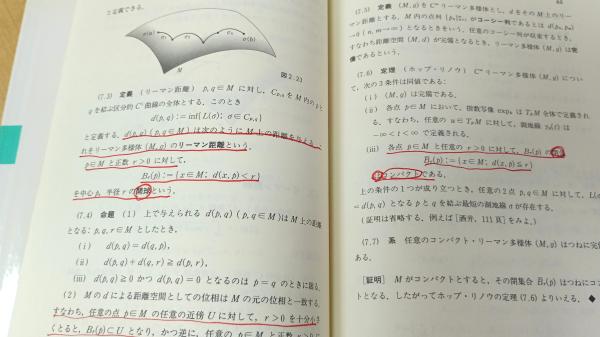 と定義できる。
σ(a)
σ1
σ2
σ(b)
M
図2・23
(7.3) 定義 (リーマン距離) p, q∈M に対し, Cp,q を M 内の p と
q を結ぶ区分的 C¹ 曲線の全体とする. このとき
d(p, q) := inf{L(σ); σ∈Cp,q}
と定義する. d(p, q) (p, q∈M) は次のように M 上の距離を与える. こ
れをリーマン多様体 (M, g) のリーマン距離という.
p∈M と正数 r>0 に対して,
Br(p) := {x∈M; d(x, p)<r}
を中心 p, 半径 r の開球という.
(7.4) 命題 (1) 上で与えられる d(p, q) (p, q∈M) は M 上の距離
となる: p, q, r∈M としたとき,
(i) d(p, q)=d(q, p),
(ii) d(p, q)+d(q, r)≧d(p, r),
(iii) d(p, q)≧0 かつ d(p, q)=0 となるのは p=q のときに限る.
(2) M の d による距離空間としての位相は M の元の位相と一致する.
すなわち, 任意の点 p∈M の任意の近傍 U に対して, r>0 を十分小さ
くとると, Br(p)⊂U となり, かつ逆に, 任意の p∈M と正数 r>0 に
(7.5) 定義 (M, g) を C∞ リーマン多様体とし, d をその M 上のリー
マン距離とする. M 内の点列 がコーシー列であるとは
→0 (n, m→∞) となるときをいう. 任意のコーシー列が収束するとき,
すなわち距離空間 (M, d) が完備となるとき, リーマン多様体 (M, g) は完
備であるという.
(7.6) 定理 (ホップ・リノウ) C∞ リーマン多様体 (M, g) につい
て, 次の3条件は同値である:
(i) (M, g) は完備である.
(ii) 各点 p∈M において, 指数写像 expp は TpM 全体で定義され
る. すなわち, 任意の u∈TpM に対して, 測地線 は
−∞<t<∞ で定義される.
(iii) 各点 p∈M と任意の r>0 に対して, Br(p) の
Br(p):={x∈M; d(x, p)≦r}
コンパクトである.
上の条件の1つが成り立つとき, 任意の2点 p, q∈M に対して,
=d(p, q) となる p と q を結ぶ最短の測地線 σ が存在する.
(証明は省略する. 例えば [酒井, 111頁] をみよ.)
(7.7) 系 任意のコンパクト・リーマン多様体 (M, g) はつねに完備
である.
[証明] M がコンパクトとすると, その閉集合 Br(p) はつねにコン
パクトとなる. したがってホップ・リノウの定理 (7.6) よりいえる. ◆